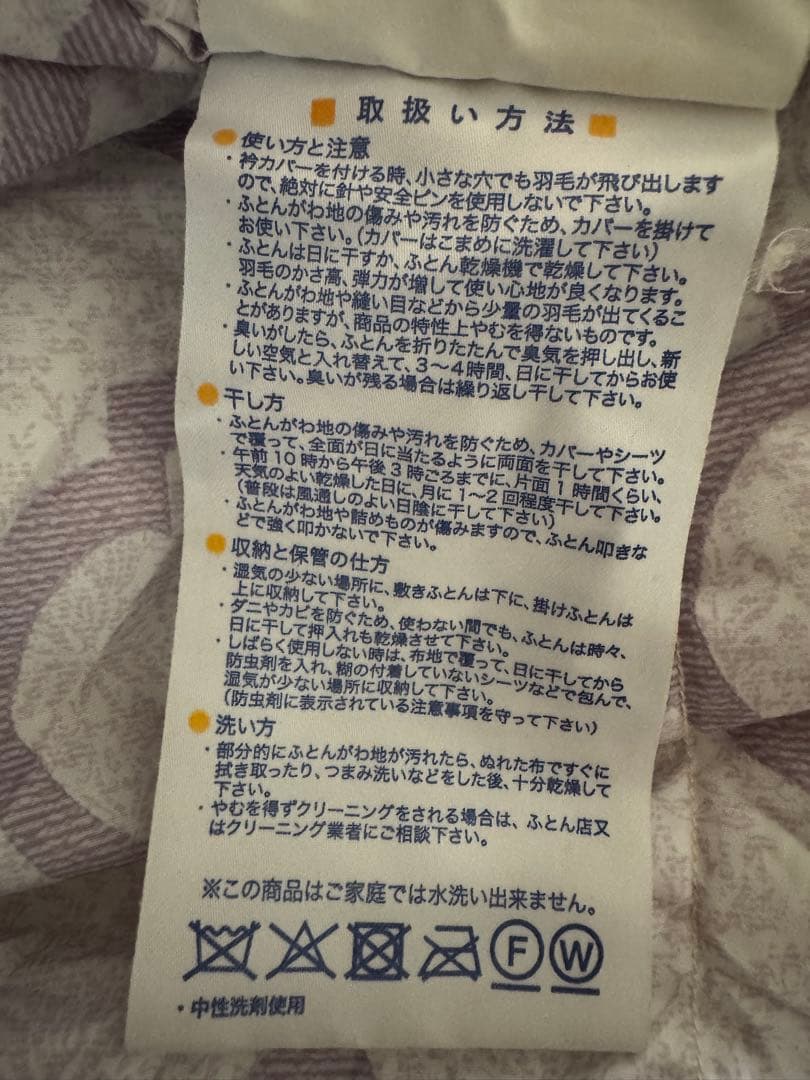 取扱い方法
使い方と注意
・衿カバーを付ける時、小さな穴でも羽毛が飛び出します
ので、絶対に針や安全ピンを使用しないで下さい。
・ふとんがわ地の傷みや汚れを防ぐため、カバーを掛けて
お使い下さい。(カバーはこまめに洗濯して下さい)
・ふとんは日に干すか、ふとん乾燥機で乾燥して下さい。
羽毛のかさ高、弾力が増して使い心地が良くなります。
・ふとんがわ地や縫い目などから少量の羽毛が出てくるこ
とがありますが、商品の特性上やむを得ないものです。
・臭いがしたら、ふとんを折りたたんで臭気を押し出し、新
しい空気と入れ替えて、3〜4時間、日に干してからお使
い下さい。臭いが残る場合は繰り返し干して下さい。
干し方
・ふとんがわ地の傷みや汚れを防ぐため、カバーやシーツ
で覆って、全面が日に当たるように両面を干して下さい。
・午前10時から午後3時ごろまでに、片面1時間くらい、
天気のよい乾燥した日に、月に1〜2回程度干して下さい。
(普段は風通しのよい日陰に干して下さい)
・ふとんがわ地や詰めものが傷みますので、ふとん叩きな
どで強く叩かないで下さい。
収納と保管の仕方
・湿気の少ない場所に、敷きふとんは下に、掛けふとんは
上に収納して下さい。
・ダニやカビを防ぐため、使わない間でも、ふとんは時々、
日に干して押入れも乾燥させて下さい。
・しばらく使用しない時は、布地で覆って、日に干してから
防虫剤を入れ、糊の付着していないシーツなどで包んで、
湿気が少ない場所に収納して下さい。
(防虫剤に表示されている注意事項を守って下さい)
洗い方
・部分的にふとんがわ地が汚れたら、ぬれた布ですぐに
拭き取ったり、つまみ洗いなどをした後、十分乾燥して
下さい。
・やむを得ずクリーニングをされる場合は、ふとん店又
はクリーニング業者にご相談下さい。
※この商品はご家庭では水洗い出来ません。
F W
・中性洗剤使用